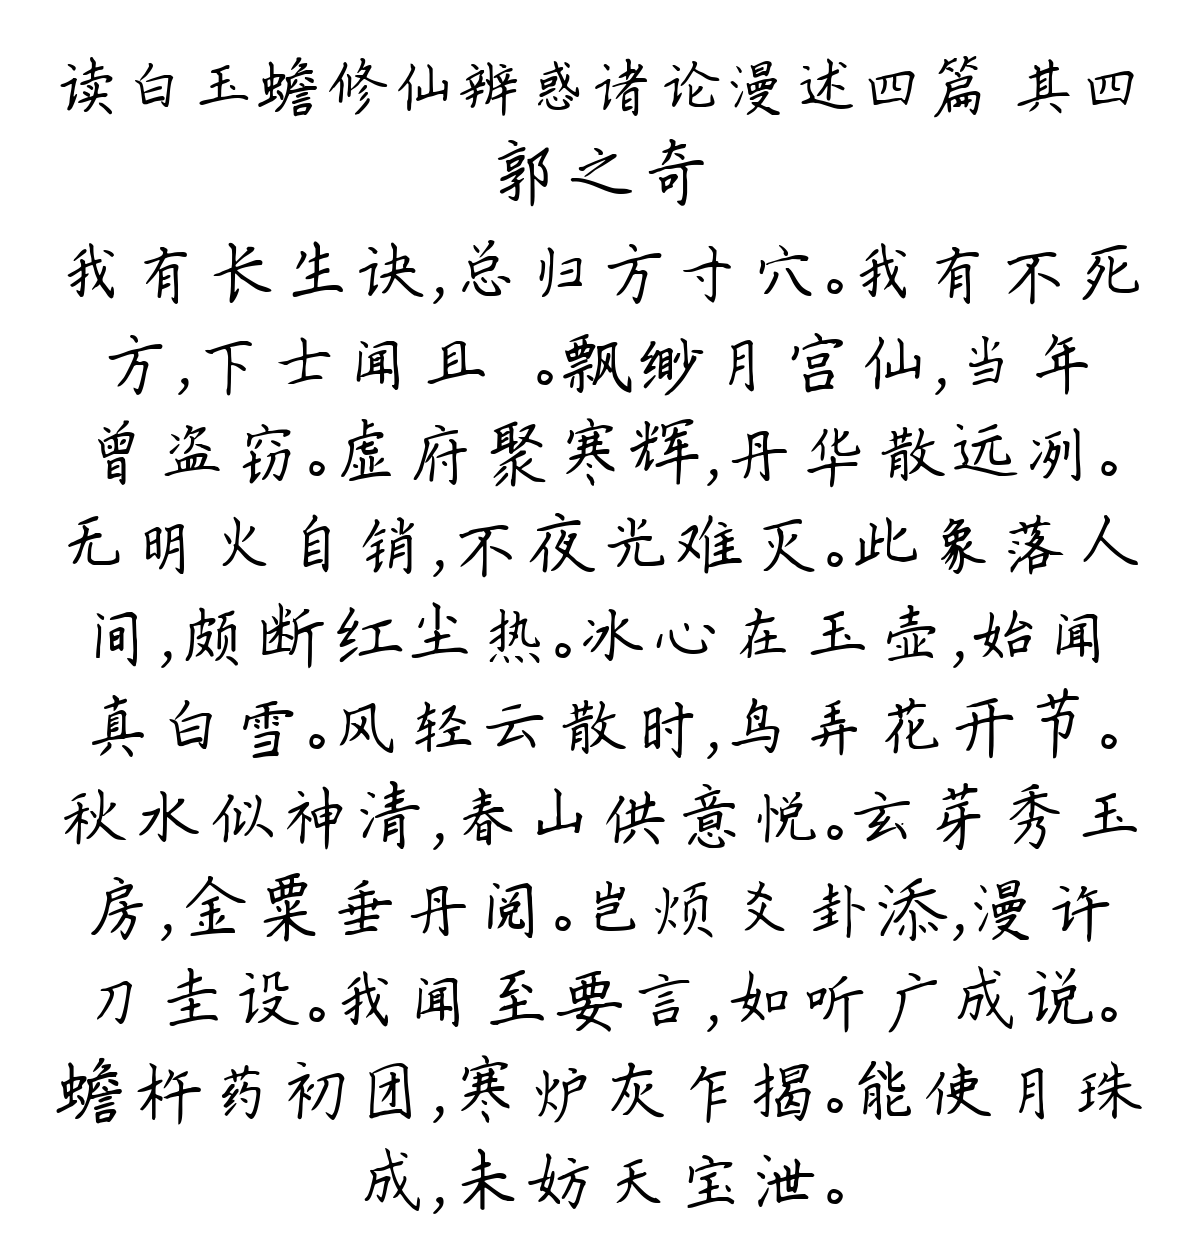 读白玉蟾修仙辨惑诸论漫述四篇 其四
郭之奇
我有长生诀,总归方寸穴。我有不死
方,下士闻且 。飘缈月宫仙,当年
曾盗窃。虚府聚寒辉,丹华散远冽。
无明火自销,不夜光难灭。此象落人
间,颇断红尘热。冰心在玉壶,始闻
真白雪。风轻云散时,鸟弄花开节。
秋水似神清,春山供意悦。玄芽秀玉
房,金粟垂丹阅。岂烦爻卦添,漫许
刀圭设。我闻至要言,如听广成说。
蟾杵药初团,寒炉灰乍揭。能使月珠
成,未妨天宝泄。